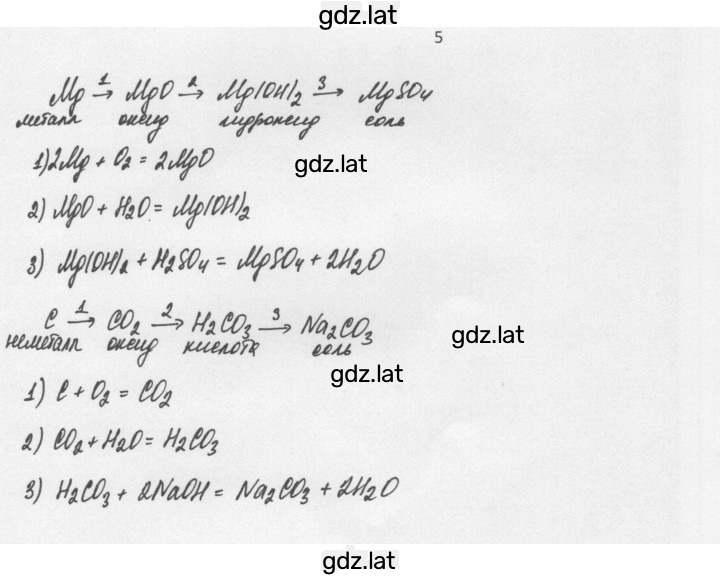 gdz.lat
5
Mg 1→ MgO 2→ Mg(OH)2 3→ MgSO4
металл оксид гидроксид соль
1) 2Mg + O2 = 2MgO
gdz.lat
2) MgO + H2O = Mg(OH)2
3) Mg(OH)2 + H2SO4 = MgSO4 + 2H2O
C 1→ CO2 2→ H2CO3 3→ Na2CO3
gdz.lat
неметалл оксид кислота соль
gdz.lat
1) C + O2 = CO2
2) CO2 + H2O = H2CO3
3) H2CO3 + 2NaOH = Na2CO3 + 2H2O
gdz.lat